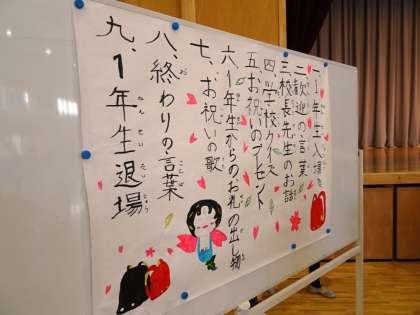 一、1年生入場
二、歓迎の言葉
三、校長先生のお話
四、学校クイズ
五、お祝いのプレゼント
六、1年生からのお礼の出し物
七、お祝いの歌
八、終わりの言葉
九、1年生退場